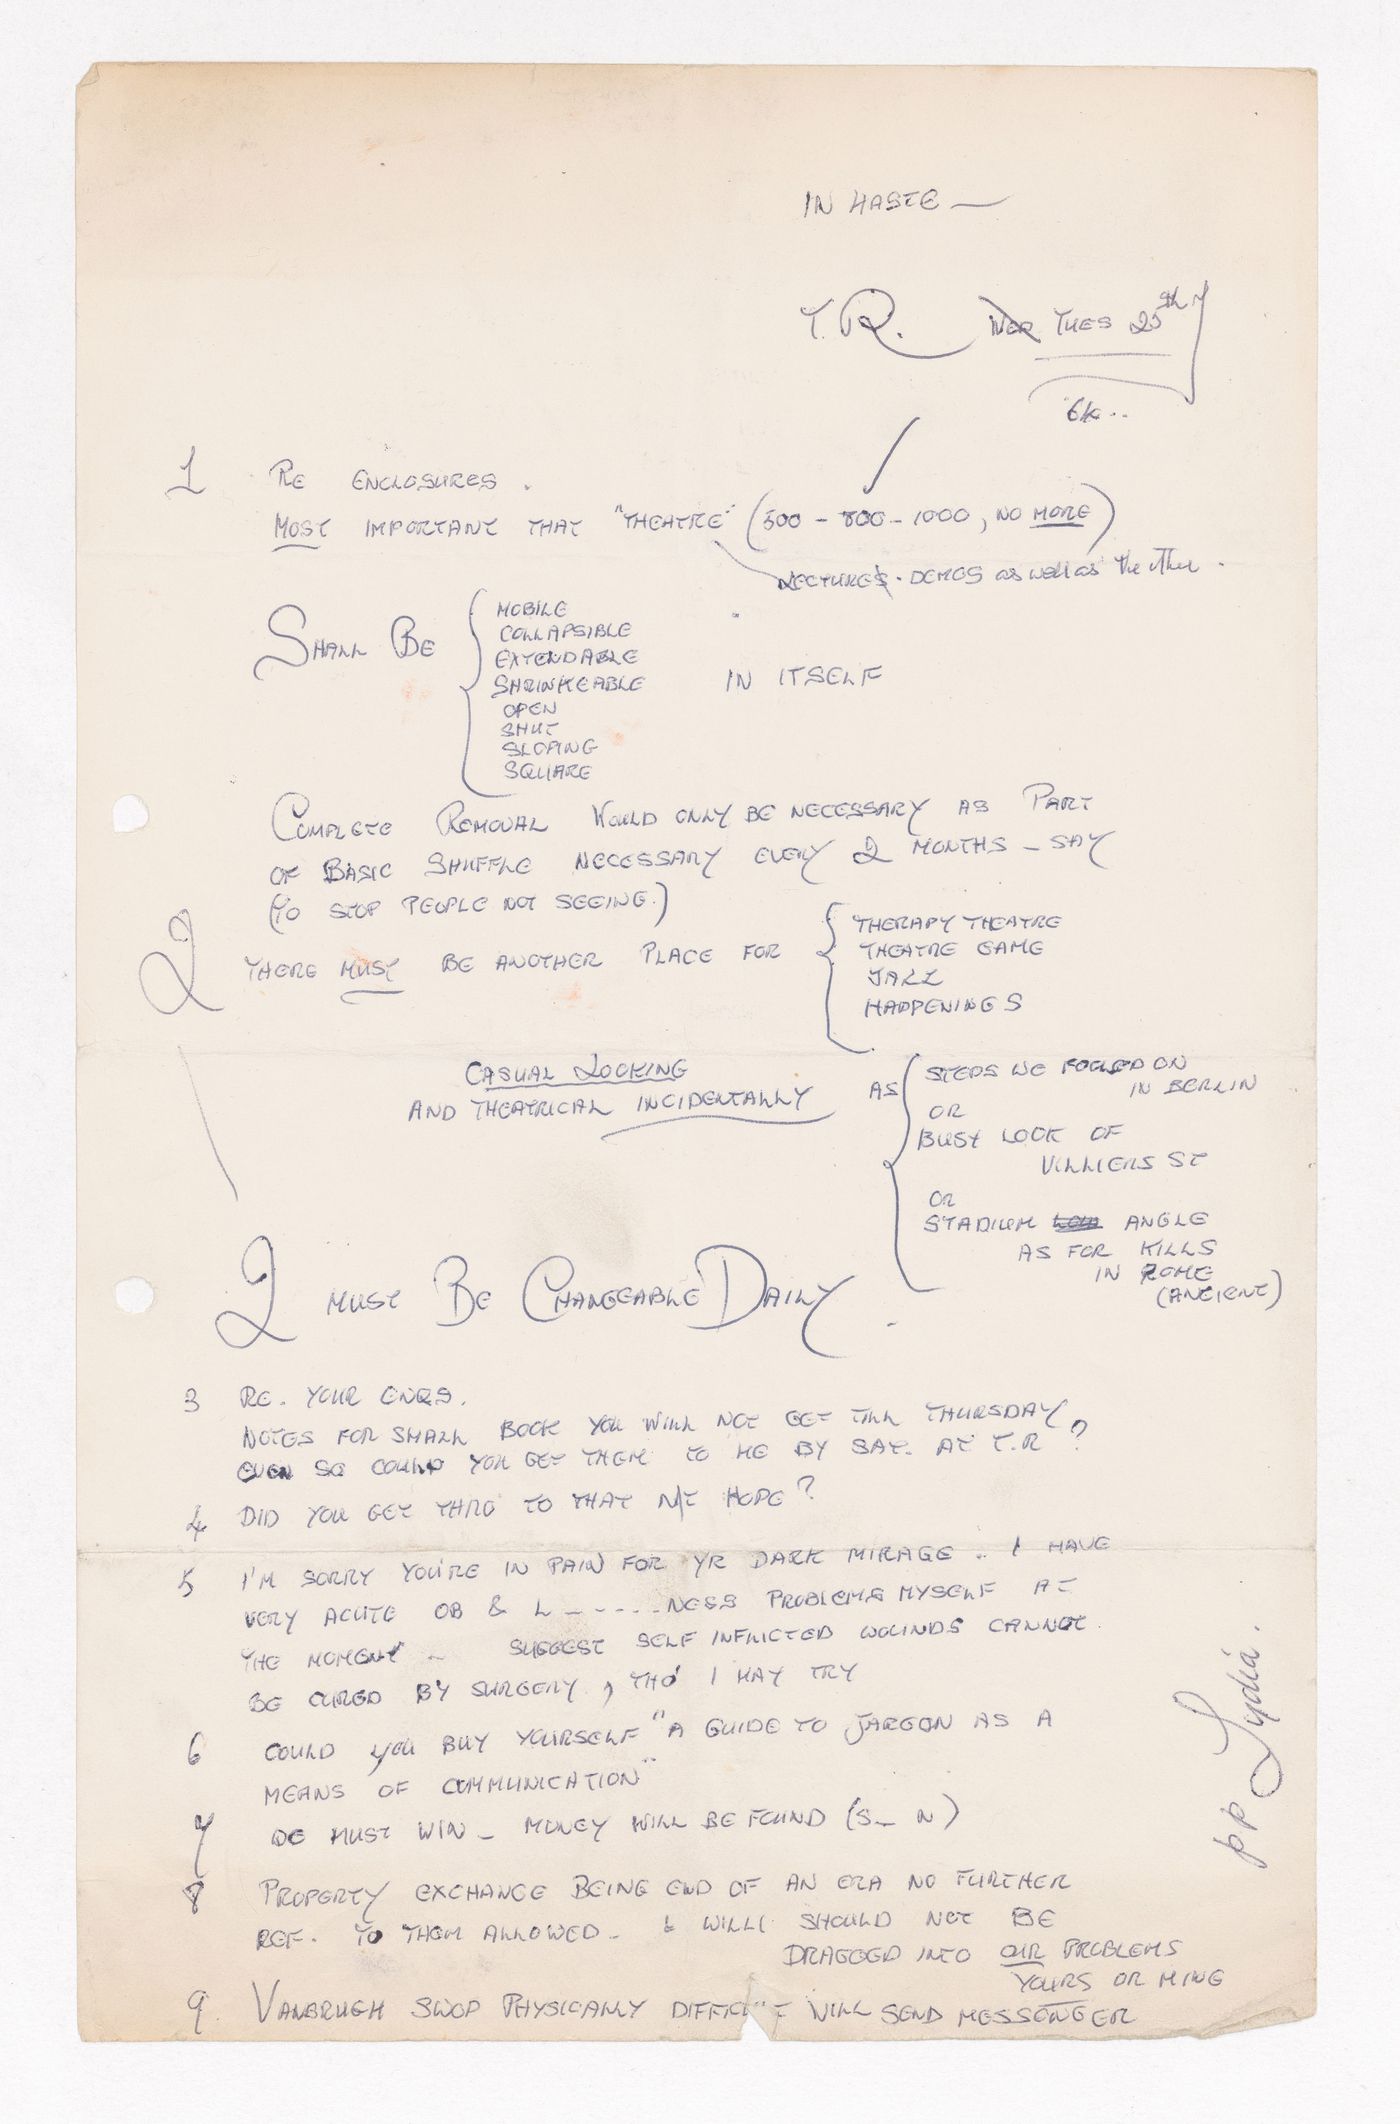 IN HASTE —
T.R. TUES 25th
64..
1 RE ENCLOSURES.
MOST IMPORTANT THAT "THEATRE" (500 – 800 – 1000, NO MORE)
LECTURES. DEMOS as well as the other.
SHALL BE
MOBILE
COLLAPSIBLE
EXTENDABLE
SHRINKEABLE
OPEN
SHUT
SLOPING
SQUARE
IN ITSELF
COMPLETE REMOVAL WOULD ONLY BE NECESSARY AS PART
OF BASIC SHUFFLE NECESSARY EVERY 2 MONTHS – SAY
(TO STOP PEOPLE NOT SEEING.)
2 THERE MUST BE ANOTHER PLACE FOR
THERAPY THEATRE
THEATRE GAME
JAZZ
HAPPENINGS
CASUAL LOOKING
AND THEATRICAL INCIDENTALLY
AS
STEPS WE FOOLED ON
IN BERLIN
OR
BUSY LOOK OF
VILLIERS ST
OR
STADIUM ANGLE
AS FOR KILLS
IN ROME
(ANCIENT)
2 MUST BE CHANGEABLE DAILY.
3 RE. YOUR ENQS.
NOTES FOR SMALL BOOK YOU WILL NOT GET TILL THURSDAY
EVEN SO COULD YOU GET THEM TO ME BY SAT. AT T.R ?
4 DID YOU GET THRO TO THAT N/T HOPE?
5 I'M SORRY YOU'RE IN PAIN FOR YR DARK MIRAGE .. I HAVE
VERY ACUTE OB & L – - - - - NESS PROBLEMS MYSELF AT
THE MOMENT – SUGGEST SELF INFLICTED WOUNDS CANNOT
BE CURED BY SURGERY, THO' I MAY TRY
6 COULD YOU BUY YOURSELF "A GUIDE TO JARGON AS A
MEANS OF COMMUNICATION"
7 WE MUST WIN – MONEY WILL BE FOUND (S– N)
8 PROPERTY EXCHANGE BEING END OF AN ERA NO FURTHER
REF. TO THEM ALLOWED – & WILLI SHOULD NOT BE
DRAGGED INTO OUR PROBLEMS
YOURS OR MINE
9. VANBRUGH SWOP PHYSICALLY DIFFICULT WILL SEND MESSENGER
pp Lydia.